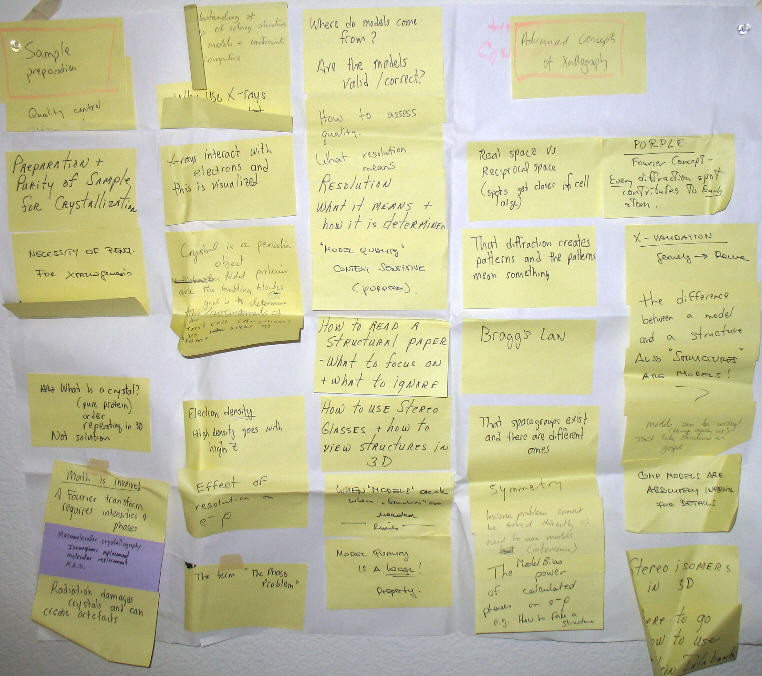 Sample
preparation
Quality control
PREPARATION +
PURITY OF SAMPLE
FOR CRYSTALLIZATION
NECESSITY OF
FOR
What is a crystal?
(pure protein)
order
repeating in 3D
Not solution
Math is involved
A Fourier transform
requires intensities &
phases
Macromolecular crystallography
Isomorphous replacement
molecular replacement
M.A.D.
Radiation damages
crystals and can
create artefacts
of solving structures
models + constraints
computers
Why USE X-rays
X-rays interact with
electrons and
this is visualized
Crystal is a periodic
object
folded proteins
are the building blocks
goal is to determine
the arrangements of
Electron density
High density goes with
high Z
Effect of
resolution on
e- ρ
The term "The Phase
Problem"
Where do models come
from?
Are the models
valid /correct?
How to assess
quality.
What resolution
means
RESOLUTION
WHAT IT MEANS +
how IT IS DETERMINED
"MODEL QUALITY"
CONTEXT SENSITIVE
(PURPOSE)
HOW TO READ A
STRUCTURAL PAPER
- WHAT TO FOCUS ON
+ WHAT TO IGNORE
HOW TO USE STEREO
GLASSES + how TO
VIEW STRUCTURES IN
3D
WHEN "MODELS" are ok
when "structures" are
needed
MODEL QUALITY
IS A LOCAL!
Property.
Advanced Concepts
of Xtallography
Real space vs
Reciprocal space
(spots get closer if cell
large)
That diffraction creates
patterns and the patterns
mean something
Bragg's Law
That spacegroups exist
and there are different
ones
Symmetry
Inverse problem cannot
be solved directly so
need to use models
(inference)
Model Bias
The power
of calculated
phases on e- ρ
e.g. How to fake a
structure
PURPLE
Fourier Concept -
Every diffraction spot
contributes to Each
atom.
X-VALIDATION
the difference
between a model
and a structure
ALSO "STRUCTURES"
ARE MODELS!
models can be wrong!
gospel
COMP MODELS ARE
ABSOLUTELY
FOR DETAILS
Stereo isomers
IN 3D
to go
to use